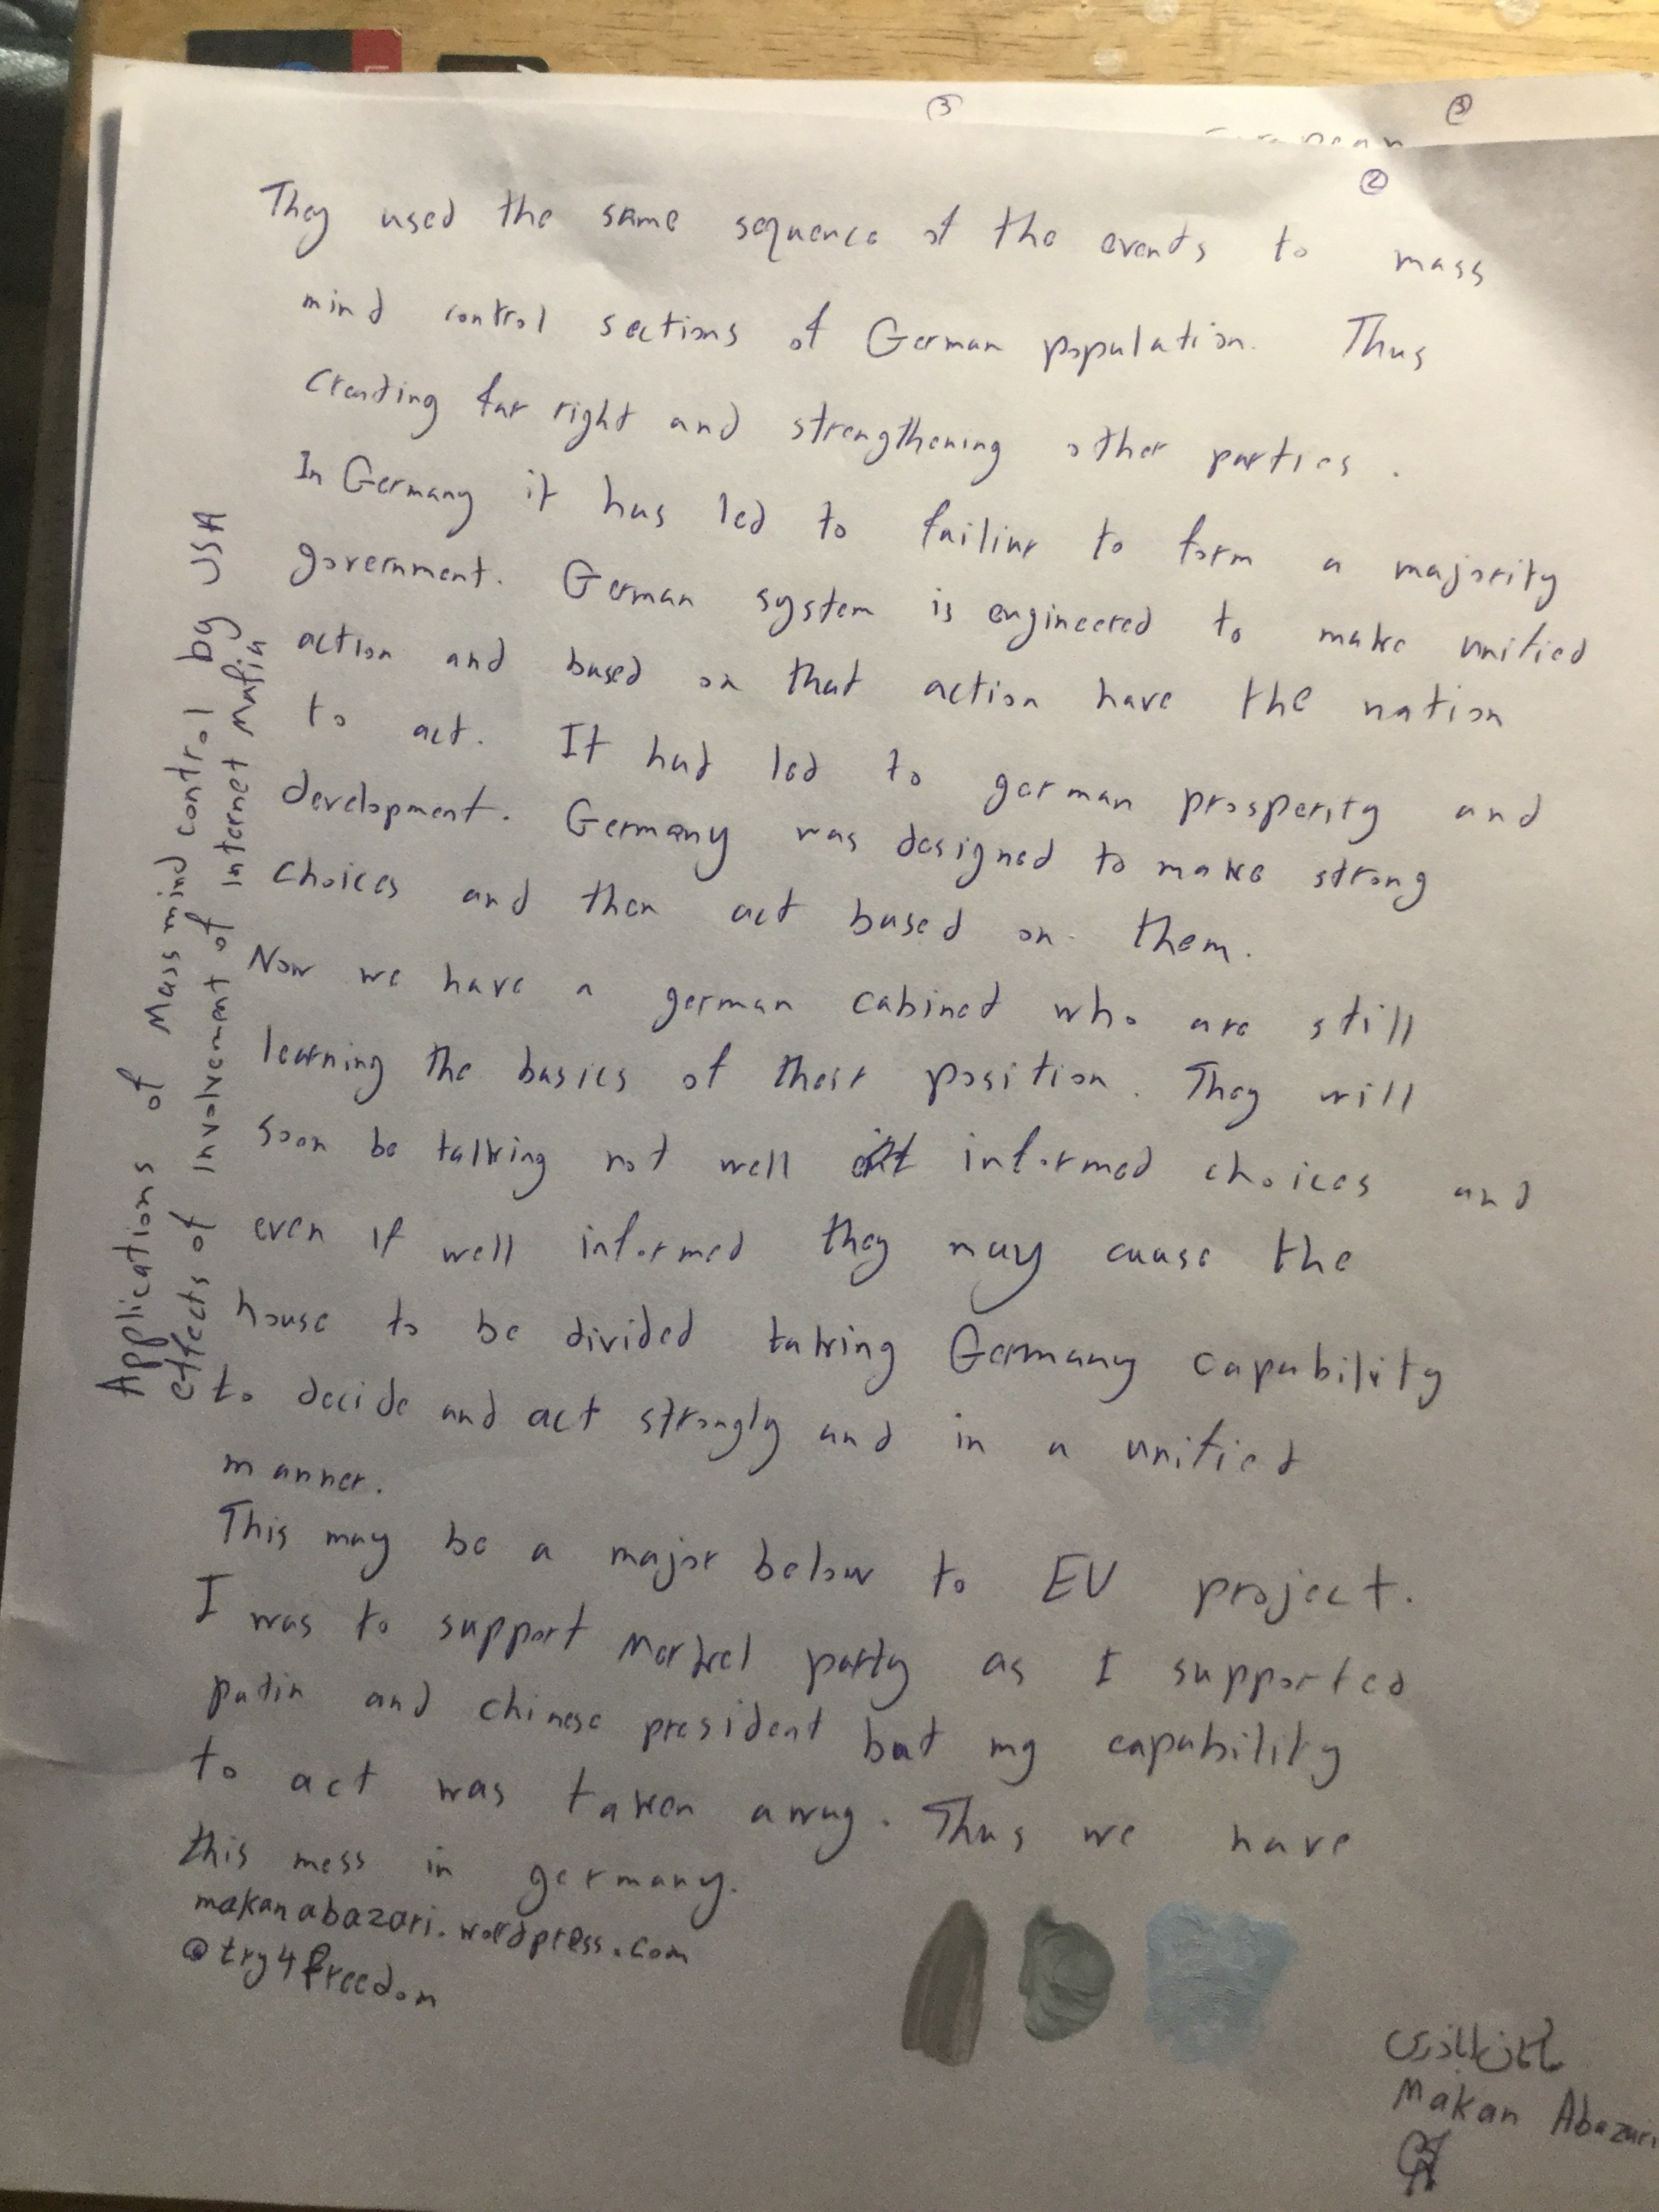 ③
③
②
They used the same sequence of the events to mass
mind control sections of German population. Thus
creating far right and strengthening other parties.
In Germany it has led to failiur to form a majority
government. German system is engineered to make unified
action and based on that action have the nation
to act. It had led to german prosperity and
development. Germany was designed to make strong
choices and then act based on them.
Now we have a german cabinet who are still
learning the basics of their position. They will
soon be talking not well informed choices and
even if well informed they may cause the
house to be divided taking Germany capability
to decide and act strongly and in a unified
manner.
This may be a major below to EU project.
I was to support Merkel party as I supported
putin and chinese president but my capability
to act was taken away. Thus we have
this mess in germany.
makanabazari.wordpress.com
@try4freedom
Applications of Mass mind control by USA
effects of Involvement of Internet Mafia
ماکان اباذری
Makan Abazari